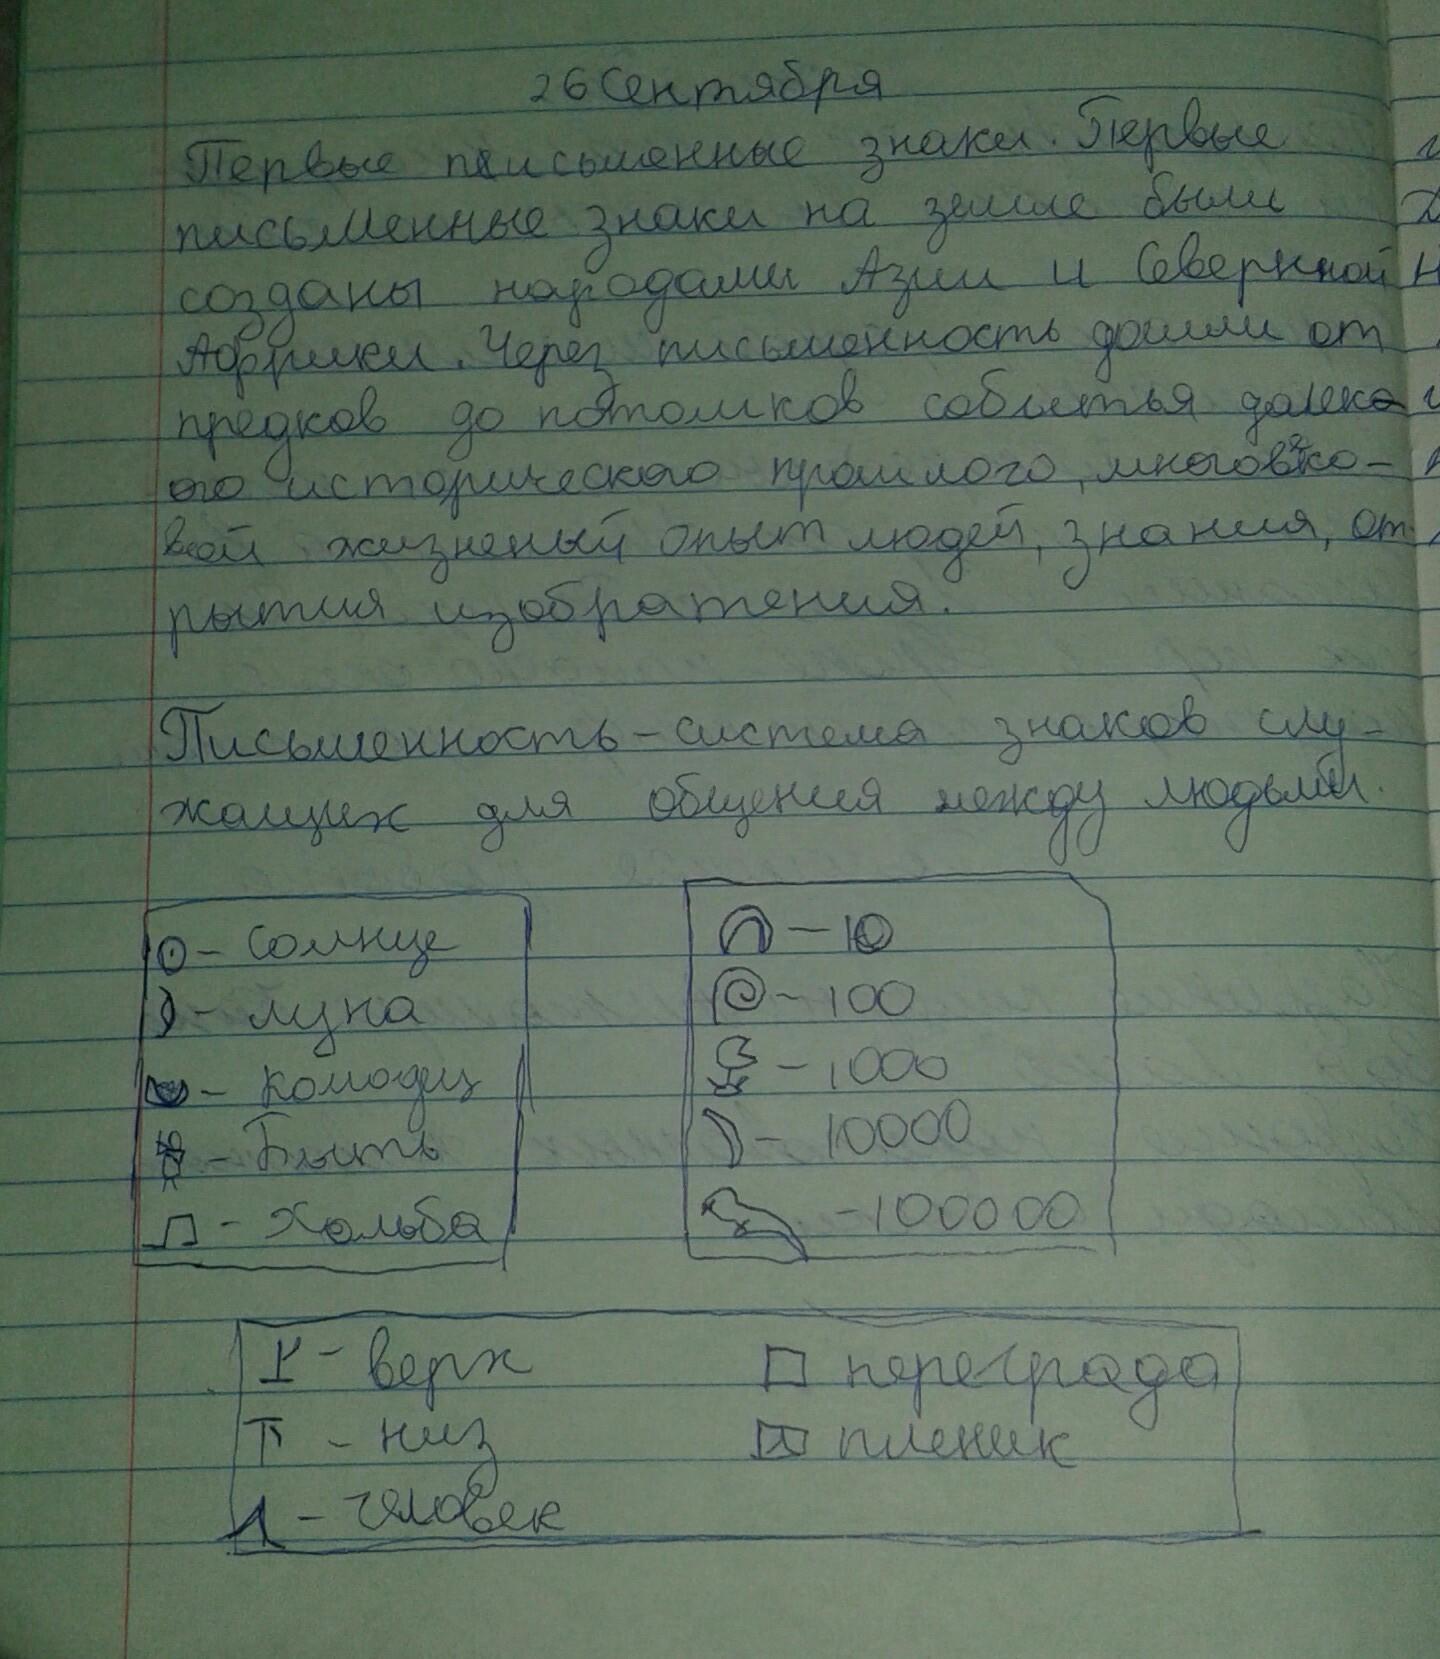 26 Сентября
Первые письменные знаки. Первые
письменные знаки на земле были
созданы народами Азии и Северкной
Африки. Через письменность дошли от
предков до потомков событья далеко
ого исторического прошлого, многовеко-
вой жизненый опыт людей, знания, от
рытия изобратения.
Письменность - система знаков слу-
жащих для общения между людьми.
- Солнце
- луна
- колодец
- Быть
- Хольба
- 10
- 100
- 1000
- 10000
- 100000
- верх
- низ
- человек
переграда
пленик